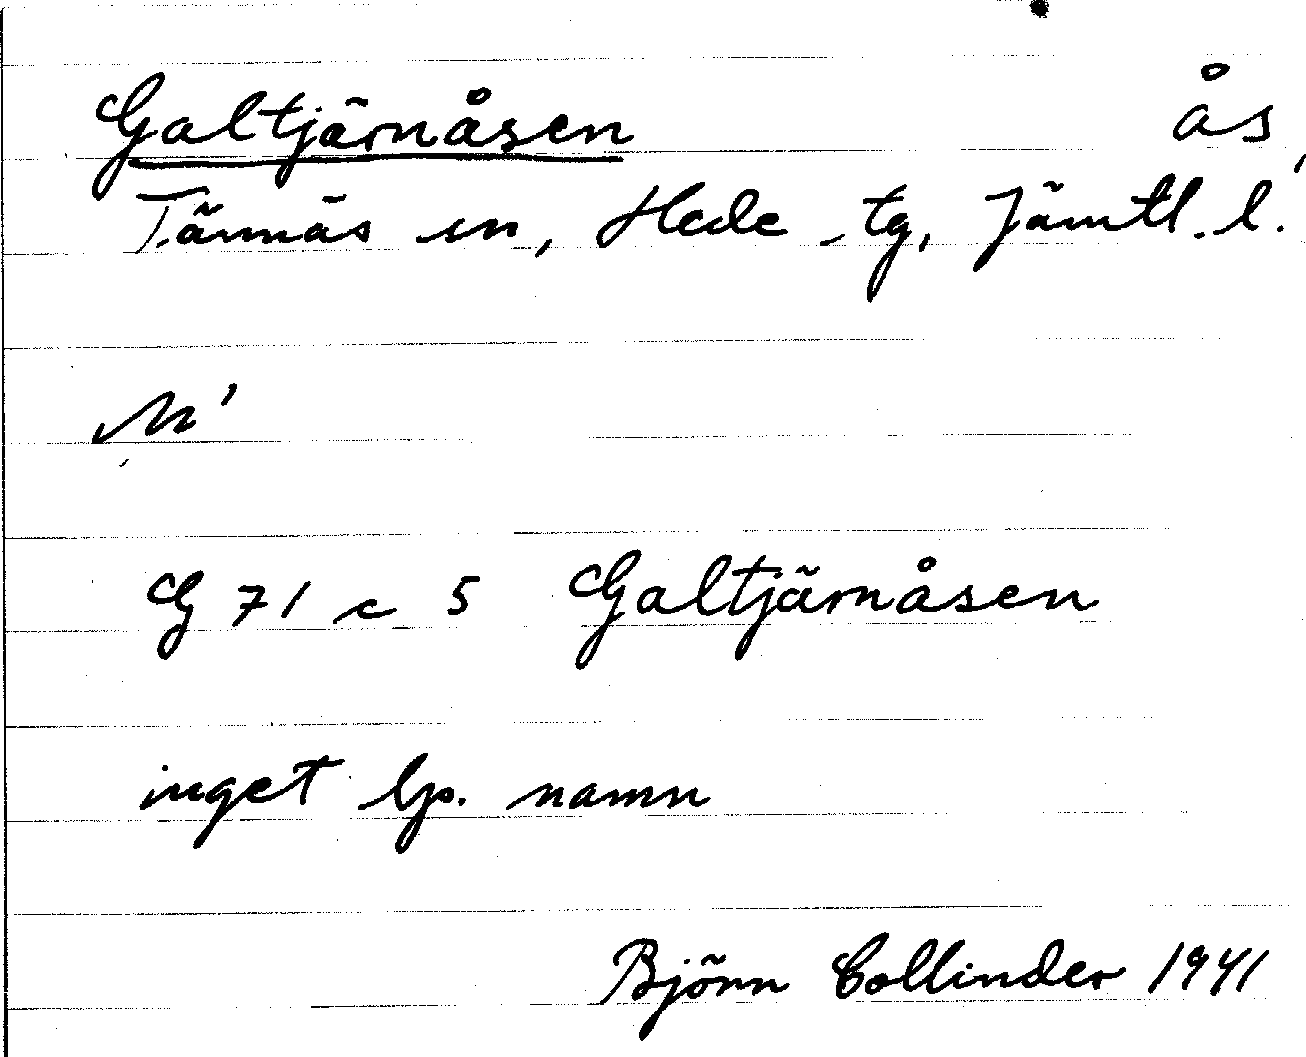 Galtjärnåsen ås
Tännäs sn, Hede tg, Jämtl. l.
G 71 c 5 Galtjärnåsen
inget lp. namn
Björn Collinder 1941